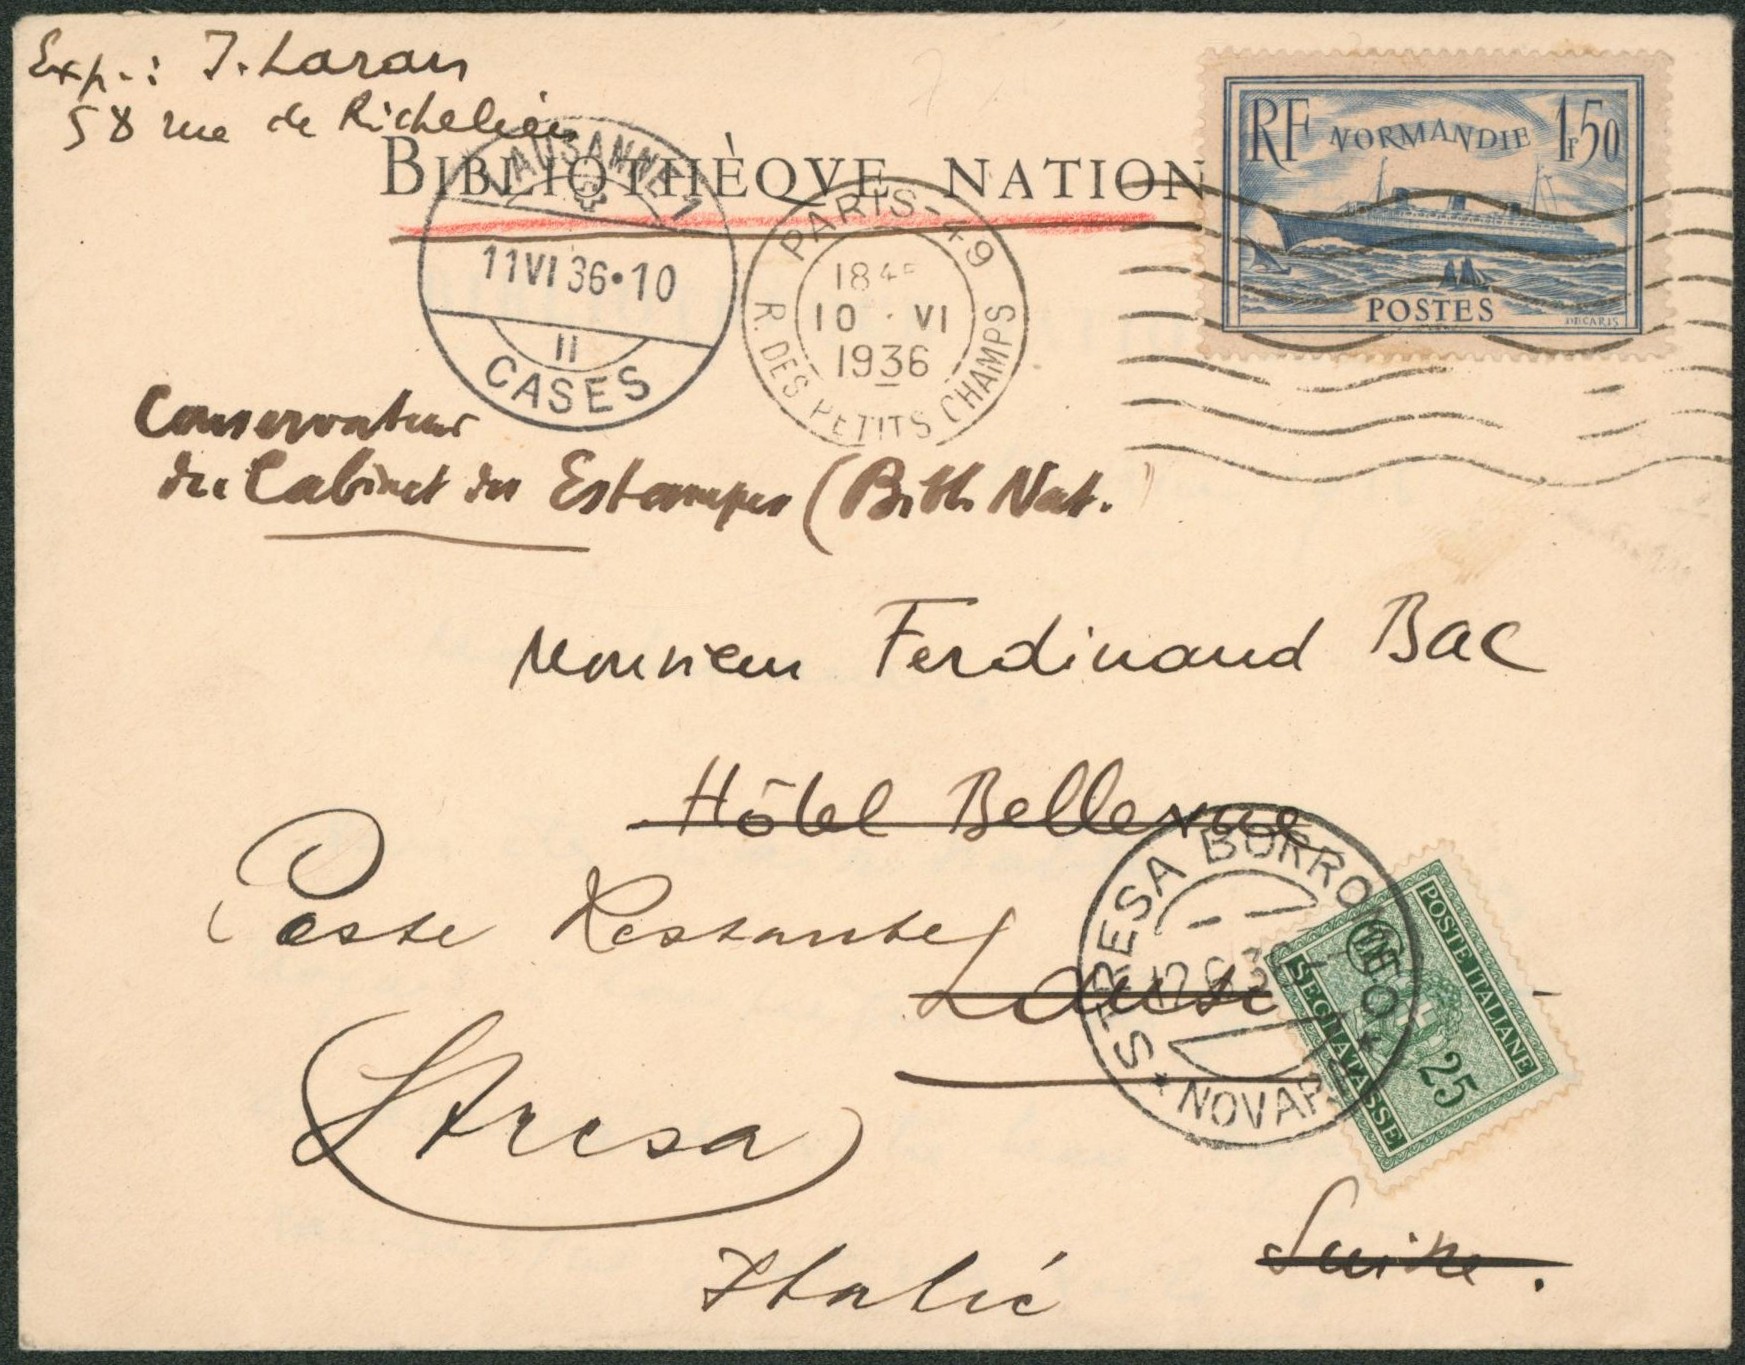 Exp.: J. Laran
58 rue de Richelieu
BIBLIOTHÈQVE NATION
LAUSANNE 1
11 VI 36•10
II
CASES
PARIS-49
1845
10 · VI
1936
R. DES PETITS CHAMPS
RF NORMANDIE 1F50
POSTES
DECARIS
Conservateur
du Cabinet des Estampes (Bibl. Nat.
Monsieur Ferdinand Bac
Hôtel Bellevue
Poste Restante
STRESA BORROMEO
NOVARA
POSTE ITALIANE
25
SEGNATASSE
Stresa
Suisse.
Italie